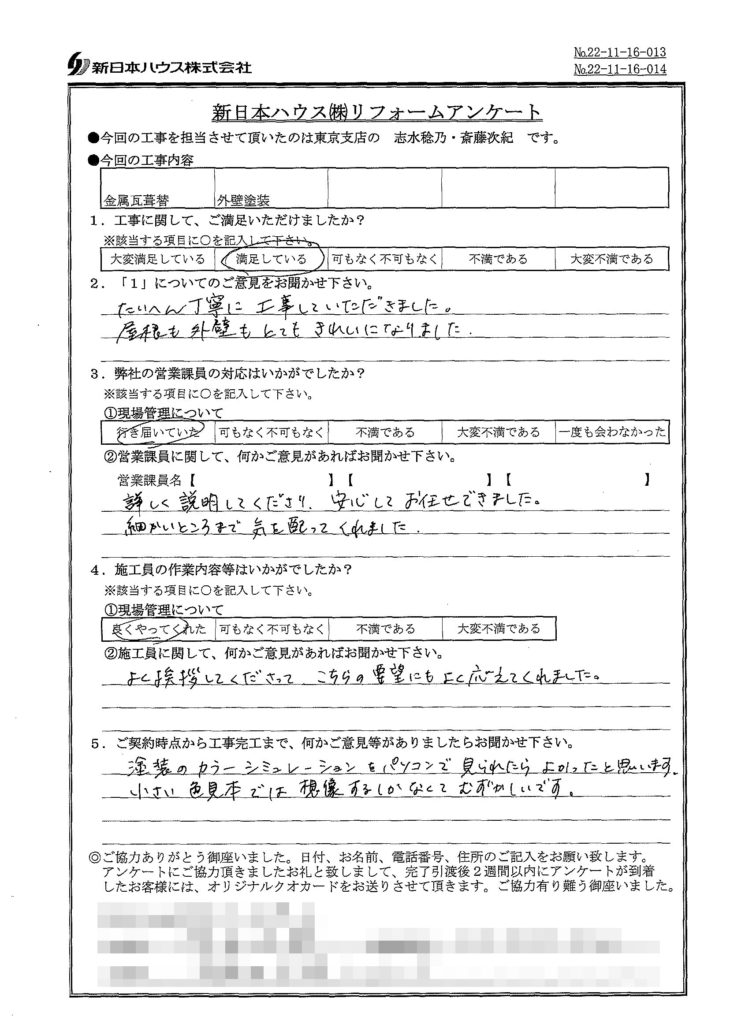 新日本ハウス株式会社
№22-11-16-013
№22-11-16-014
新日本ハウス㈱リフォームアンケート
●今回の工事を担当させて頂いたのは東京支店の 志水稔乃・斎藤次紀 です。
●今回の工事内容
金属瓦葺替 外壁塗装
1．工事に関して、ご満足いただけましたか？
※該当する項目に○を記入して下さい。
大変満足している 満足している 可もなく不可もなく 不満である 大変不満である
2．「1」についてのご意見をお聞かせ下さい。
たいへん丁寧に工事していただきました。
屋根も外壁もとてもきれいになりました.
3．弊社の営業課員の対応はいかがでしたか？
※該当する項目に○を記入して下さい。
①現場管理について
行き届いていた 可もなく不可もなく 不満である 大変不満である 一度も会わなかった
②営業課員に関して、何かご意見があればお聞かせ下さい。
営業課員名【 】【 】【 】
詳しく説明してくださり、安心してお任せできました。
細かいところまで気を配ってくれました.
4．施工員の作業内容等はいかがでしたか？
※該当する項目に○を記入して下さい。
①現場管理について
良くやってくれた 可もなく不可もなく 不満である 大変不満である
②施工員に関して、何かご意見があればお聞かせ下さい。
よく挨拶してくださって、こちらの要望にもよく応えてくれました。
5．ご契約時点から工事完工まで、何かご意見等がありましたらお聞かせ下さい。
塗装のカラーシミュレーションをパソコンで見られたらよかったと思います.
小さい色見本では想像するしかなくてむずかしいです。
◎ご協力ありがとう御座いました。日付、お名前、電話番号、住所のご記入をお願い致します。
アンケートにご協力頂きましたお礼と致しまして、完了引渡後２週間以内にアンケートが到着
したお客様には、オリジナルクオカードをお送りさせて頂きます。ご協力有り難う御座いました。